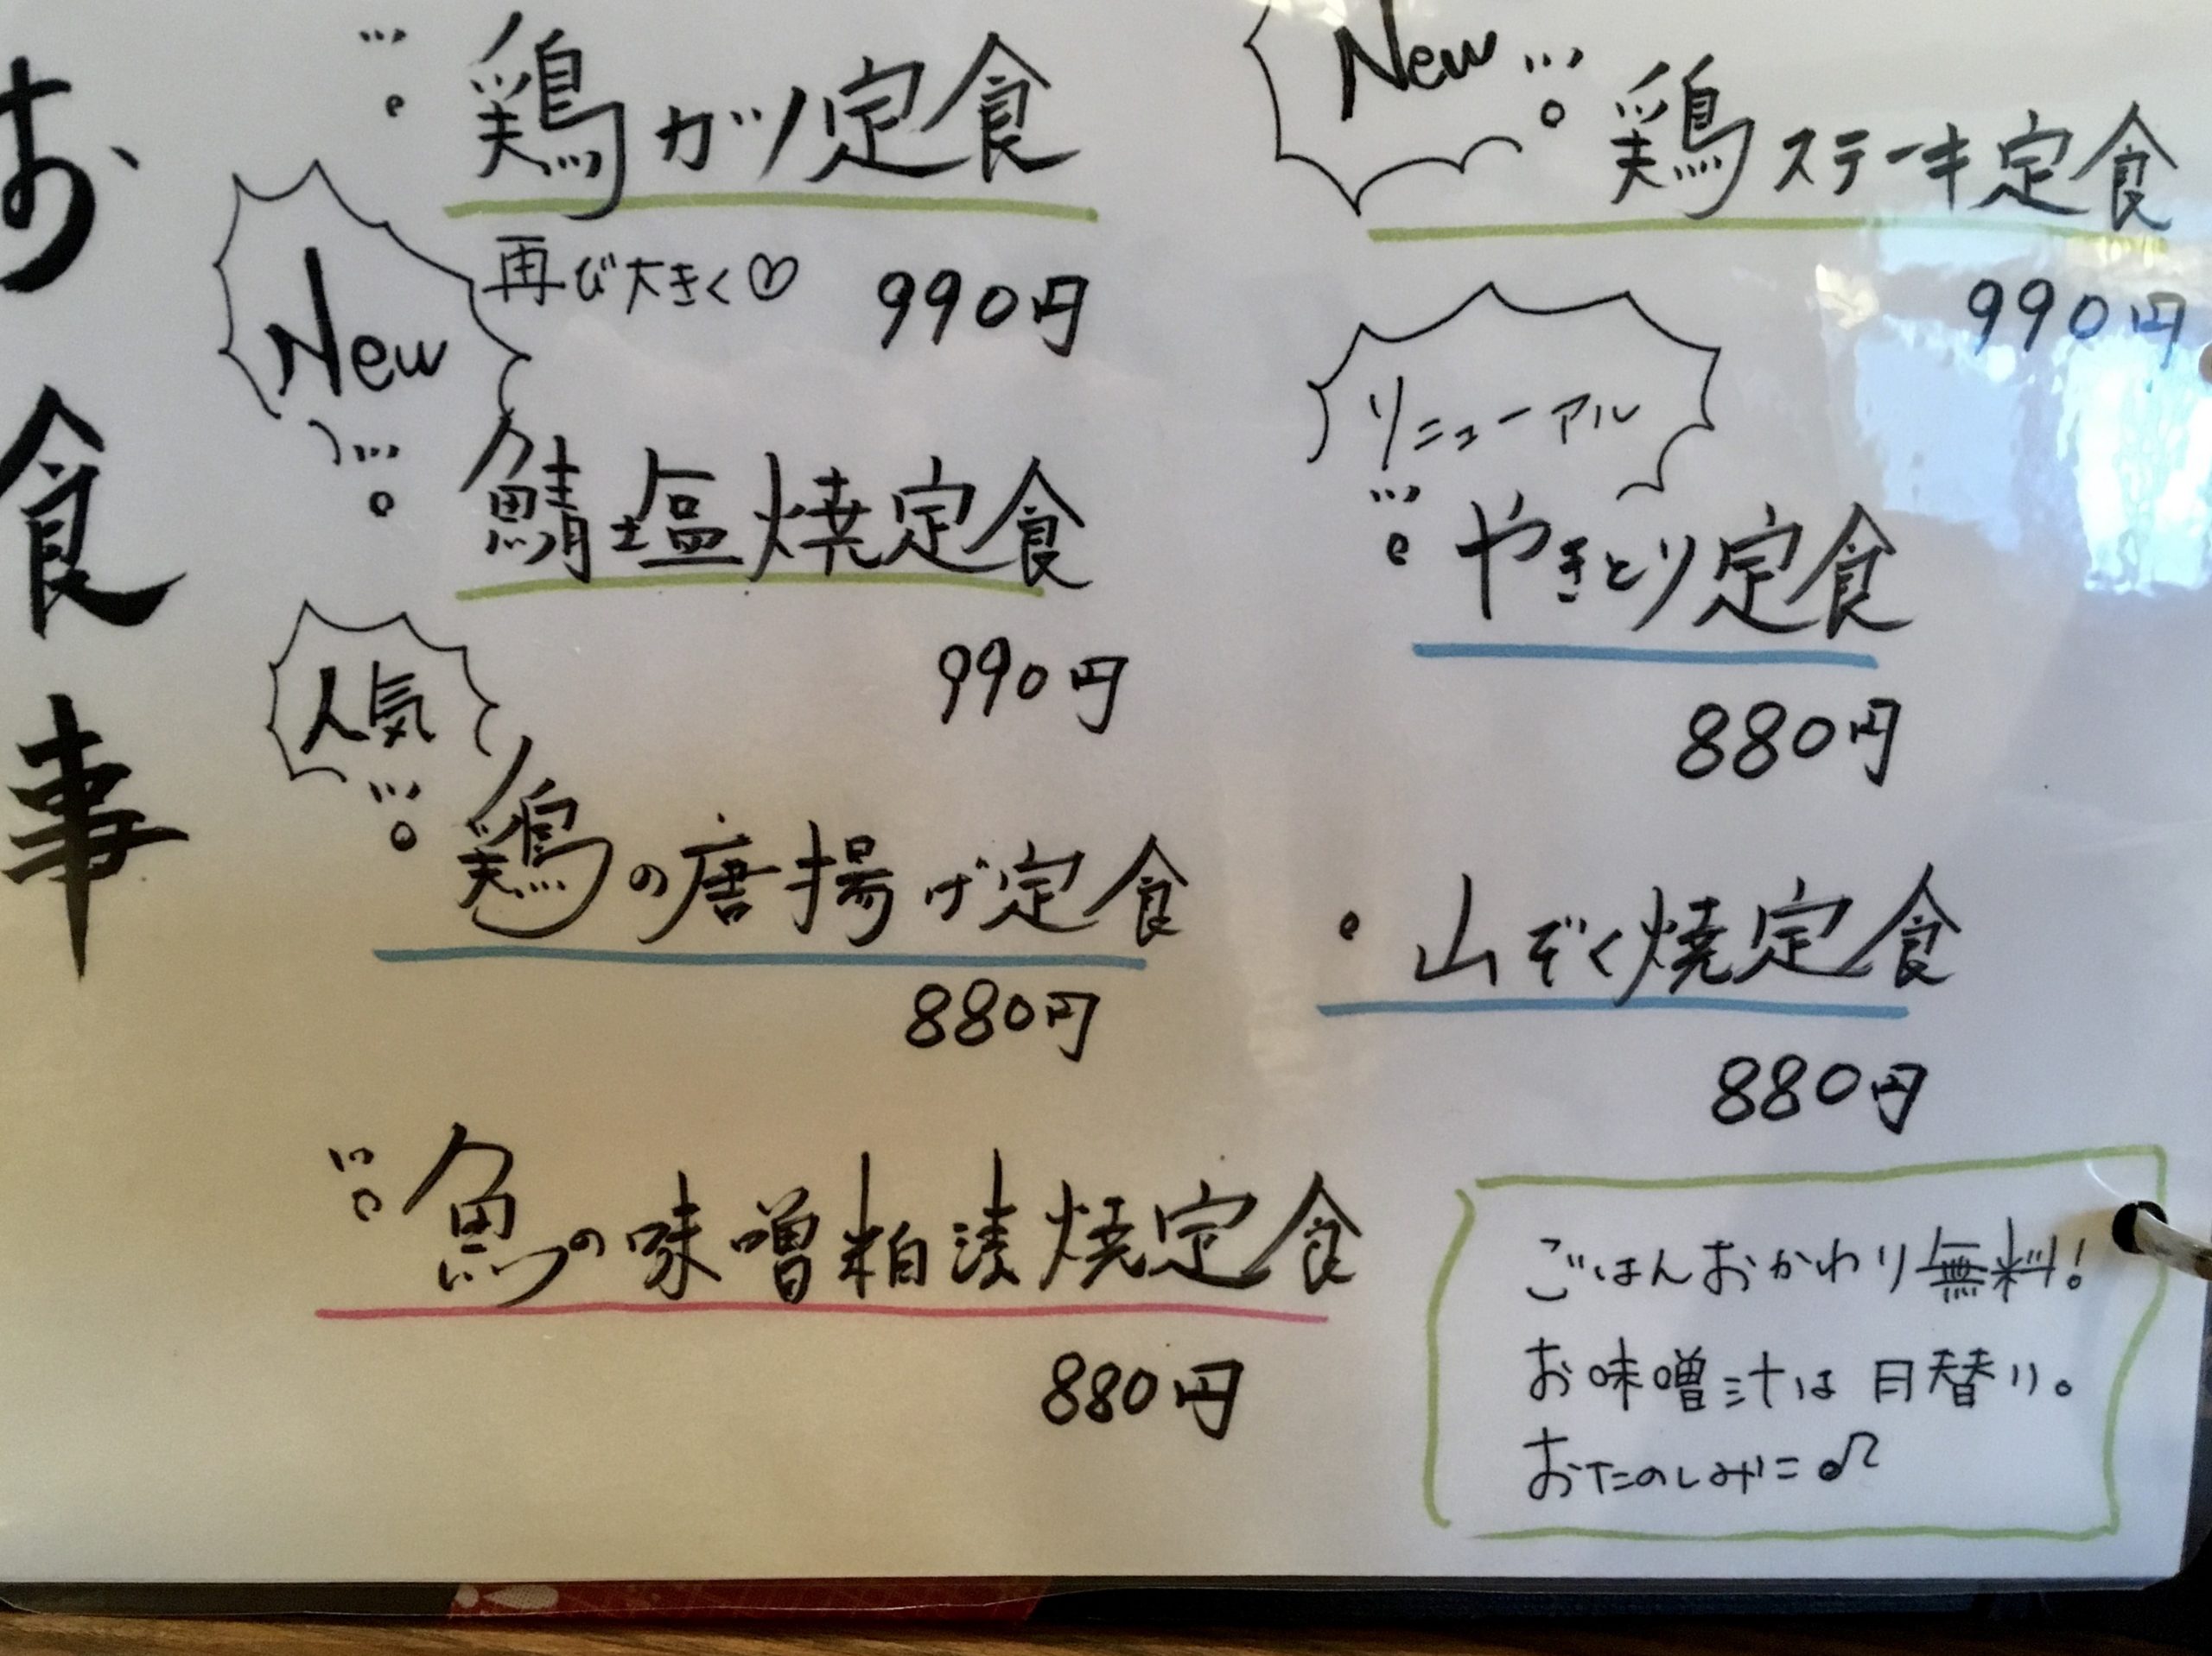 お食事
鶏カツ定食
再び大きく♡
990円
New
鯖塩焼定食
990円
人気
鶏の唐揚げ定食
880円
魚の味噌粕漬焼定食
880円
New
鶏ステーキ定食
990円
リニューアル
やきとり定食
880円
山ぞく焼定食
880円
ごはんおかわり無料!
お味噌汁は日替り。
おたのしみに♫